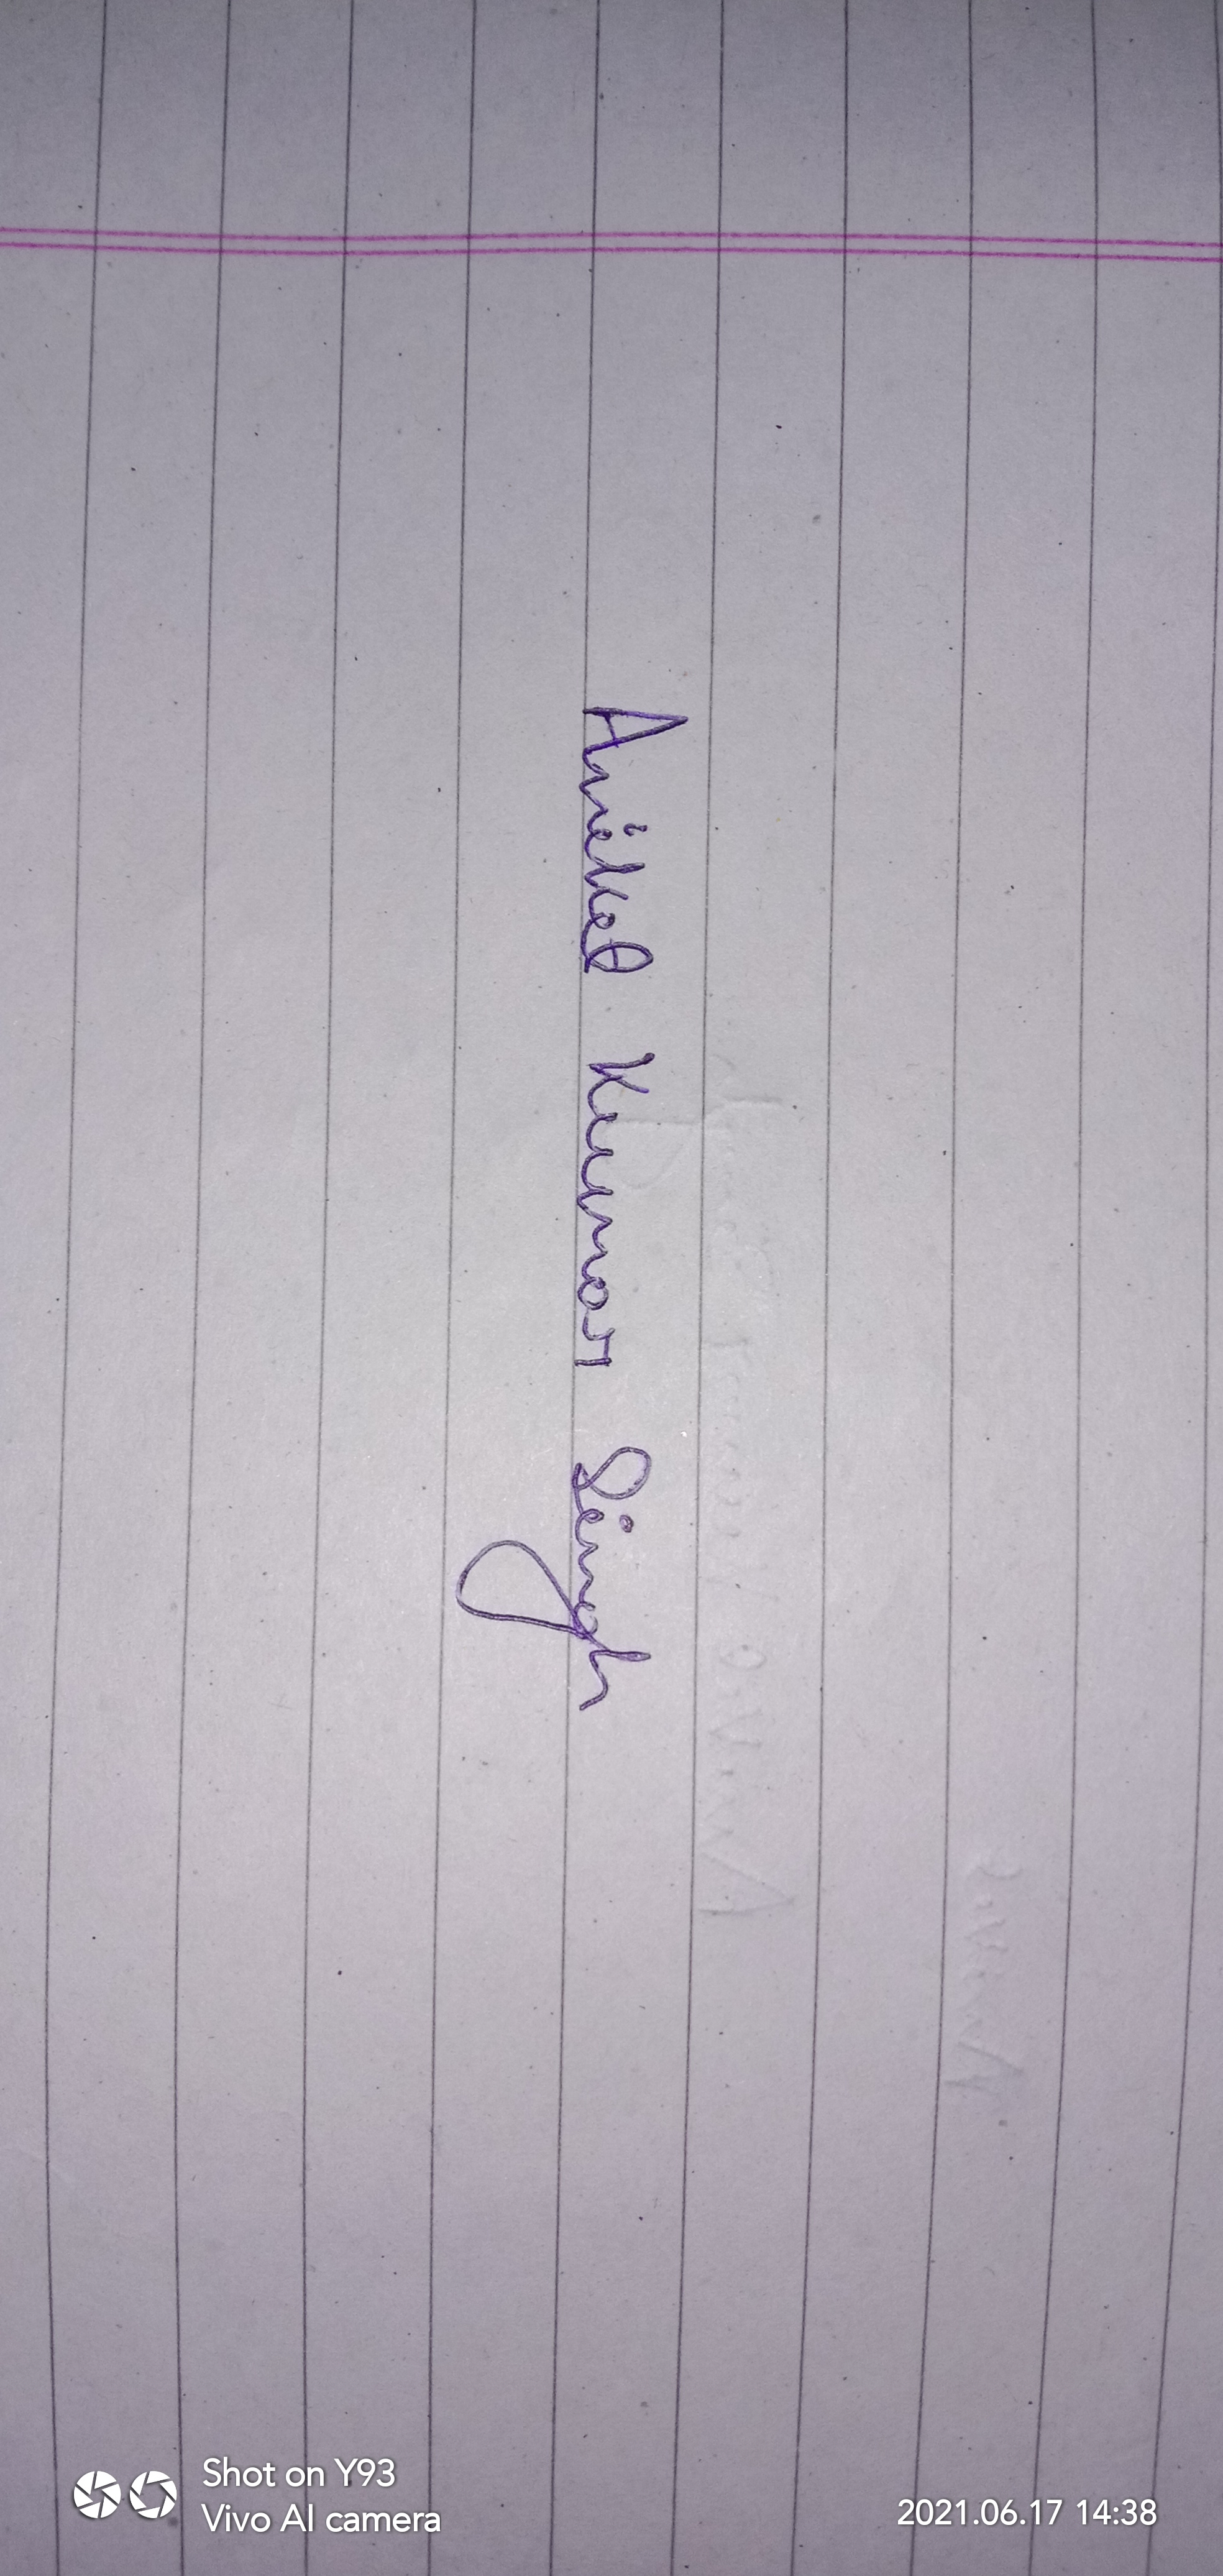 Aniket Kumar Singh
Shot on Y93
Vivo AI camera
2021.06.17 14:38